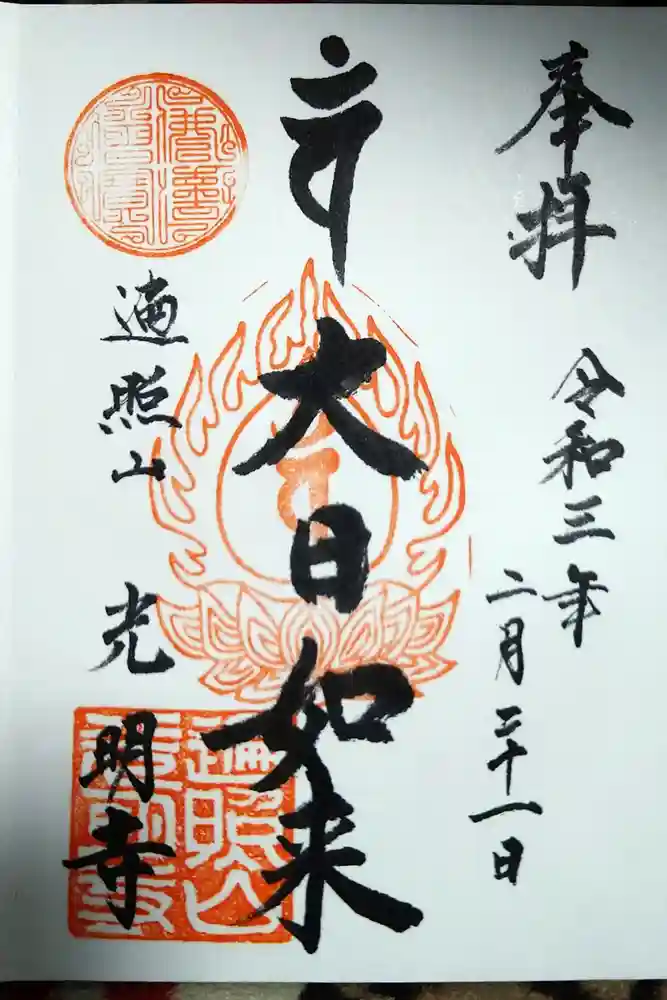 奉拝
令和三年
二月二十一日
大日如来
遍照山
光明寺